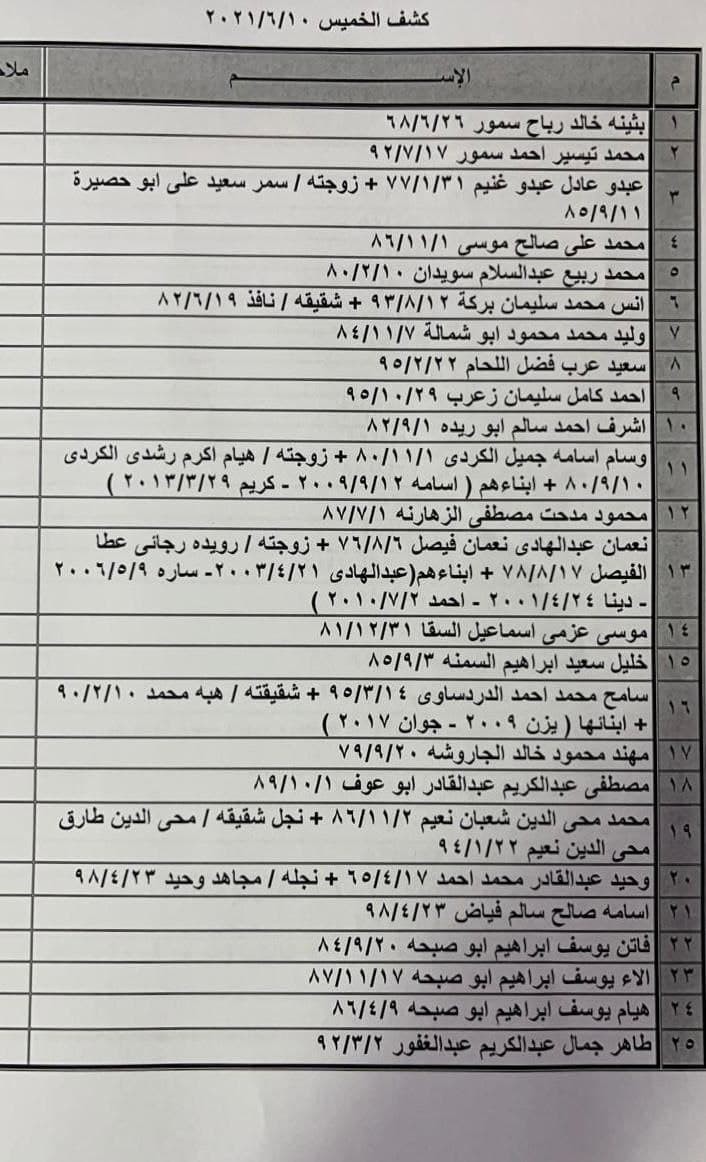 كشف الخميس ٢٠٢١/٦/١٠
م الإســـــم ملا
١ بثينه خالد رباح سمور ٦٨/٦/٢٦
٢ محمد تيسير احمد سمور ٩٢/٧/١٧
٣ عبدو عادل عبدو غنيم ٧٧/١/٣١ + زوجته / سمر سعيد على ابو حصيرة
٨٥/٩/١١
٤ محمد على صالح موسى ٨٦/١١/١
٥ محمد ربيع عبدالسلام سويدان ٨٠/٢/١٠
٦ انس محمد سليمان بركة ٩٣/٨/١٢ + شقيقه / نافذ ٨٢/٦/١٩
٧ وليد محمد محمود ابو شمالة ٨٤/١١/٧
٨ سعيد عرب فضل اللحام ٩٥/٢/٢٢
٩ احمد كامل سليمان زعرب ٩٥/١٠/٢٩
١٠ اشرف احمد سالم ابو ريده ٨٢/٩/١
١١ وسام اسامه جميل الكردى ٨٠/١١/١ + زوجته / هيام اكرم رشدى الكردى
٨٠/٩/١٠ + ابناءهم ( اسامه ٢٠٠٩/٩/١٢ - كريم ٢٠١٣/٣/٢٩ )
١٢ محمود مدحت مصطفى الزهارنه ٨٧/٧/١
١٣ نعمان عبدالهادى نعمان فيصل ٧٦/٨/٦ + زوجته / رويده رجائى عطا
الفيصل ٧٨/٨/١٧ + ابناءهم(عبدالهادى ٢٠٠٣/٤/٢١- ساره ٢٠٠٦/٥/٩
- دينا ٢٠٠١/٤/٢٤ - احمد ٢٠١٠/٧/٢ )
١٤ موسى عزمى اسماعيل السقا ٨١/١٢/٣١
١٥ خليل سعيد ابراهيم السمنه ٨٥/٩/٣
١٦ سامح محمد احمد الدردساوى ٩٥/٣/١٤ + شقيقته / هبه محمد ٩٠/٢/١٠
+ ابنائها ( يزن ٢٠٠٩ - جوان ٢٠١٧ )
١٧ مهند محمود خالد الجاروشه ٧٩/٩/٢٠
١٨ مصطفى عبدالكريم عبدالقادر ابو عوف ٨٩/١٠/١
١٩ محمد محى الدين شعبان نعيم ٨٦/١١/٢ + نجل شقيقه / محى الدين طارق
محى الدين نعيم ٩٤/١/٢٢
٢٠ وحيد عبدالقادر محمد احمد ٦٥/٤/١٧ + نجله / مجاهد وحيد ٩٨/٤/٢٣
٢١ اسامه صالح سالم فياض ٩٨/٤/٢٣
٢٢ فاتن يوسف ابراهيم ابو صبحه ٨٤/٩/٢٠
٢٣ الاء يوسف ابراهيم ابو صبحه ٨٧/١١/١٧
٢٤ هيام يوسف ابراهيم ابو صبحه ٨٦/٤/٩
٢٥ طاهر جمال عبدالكريم عبدالغفور ٩٢/٣/٢